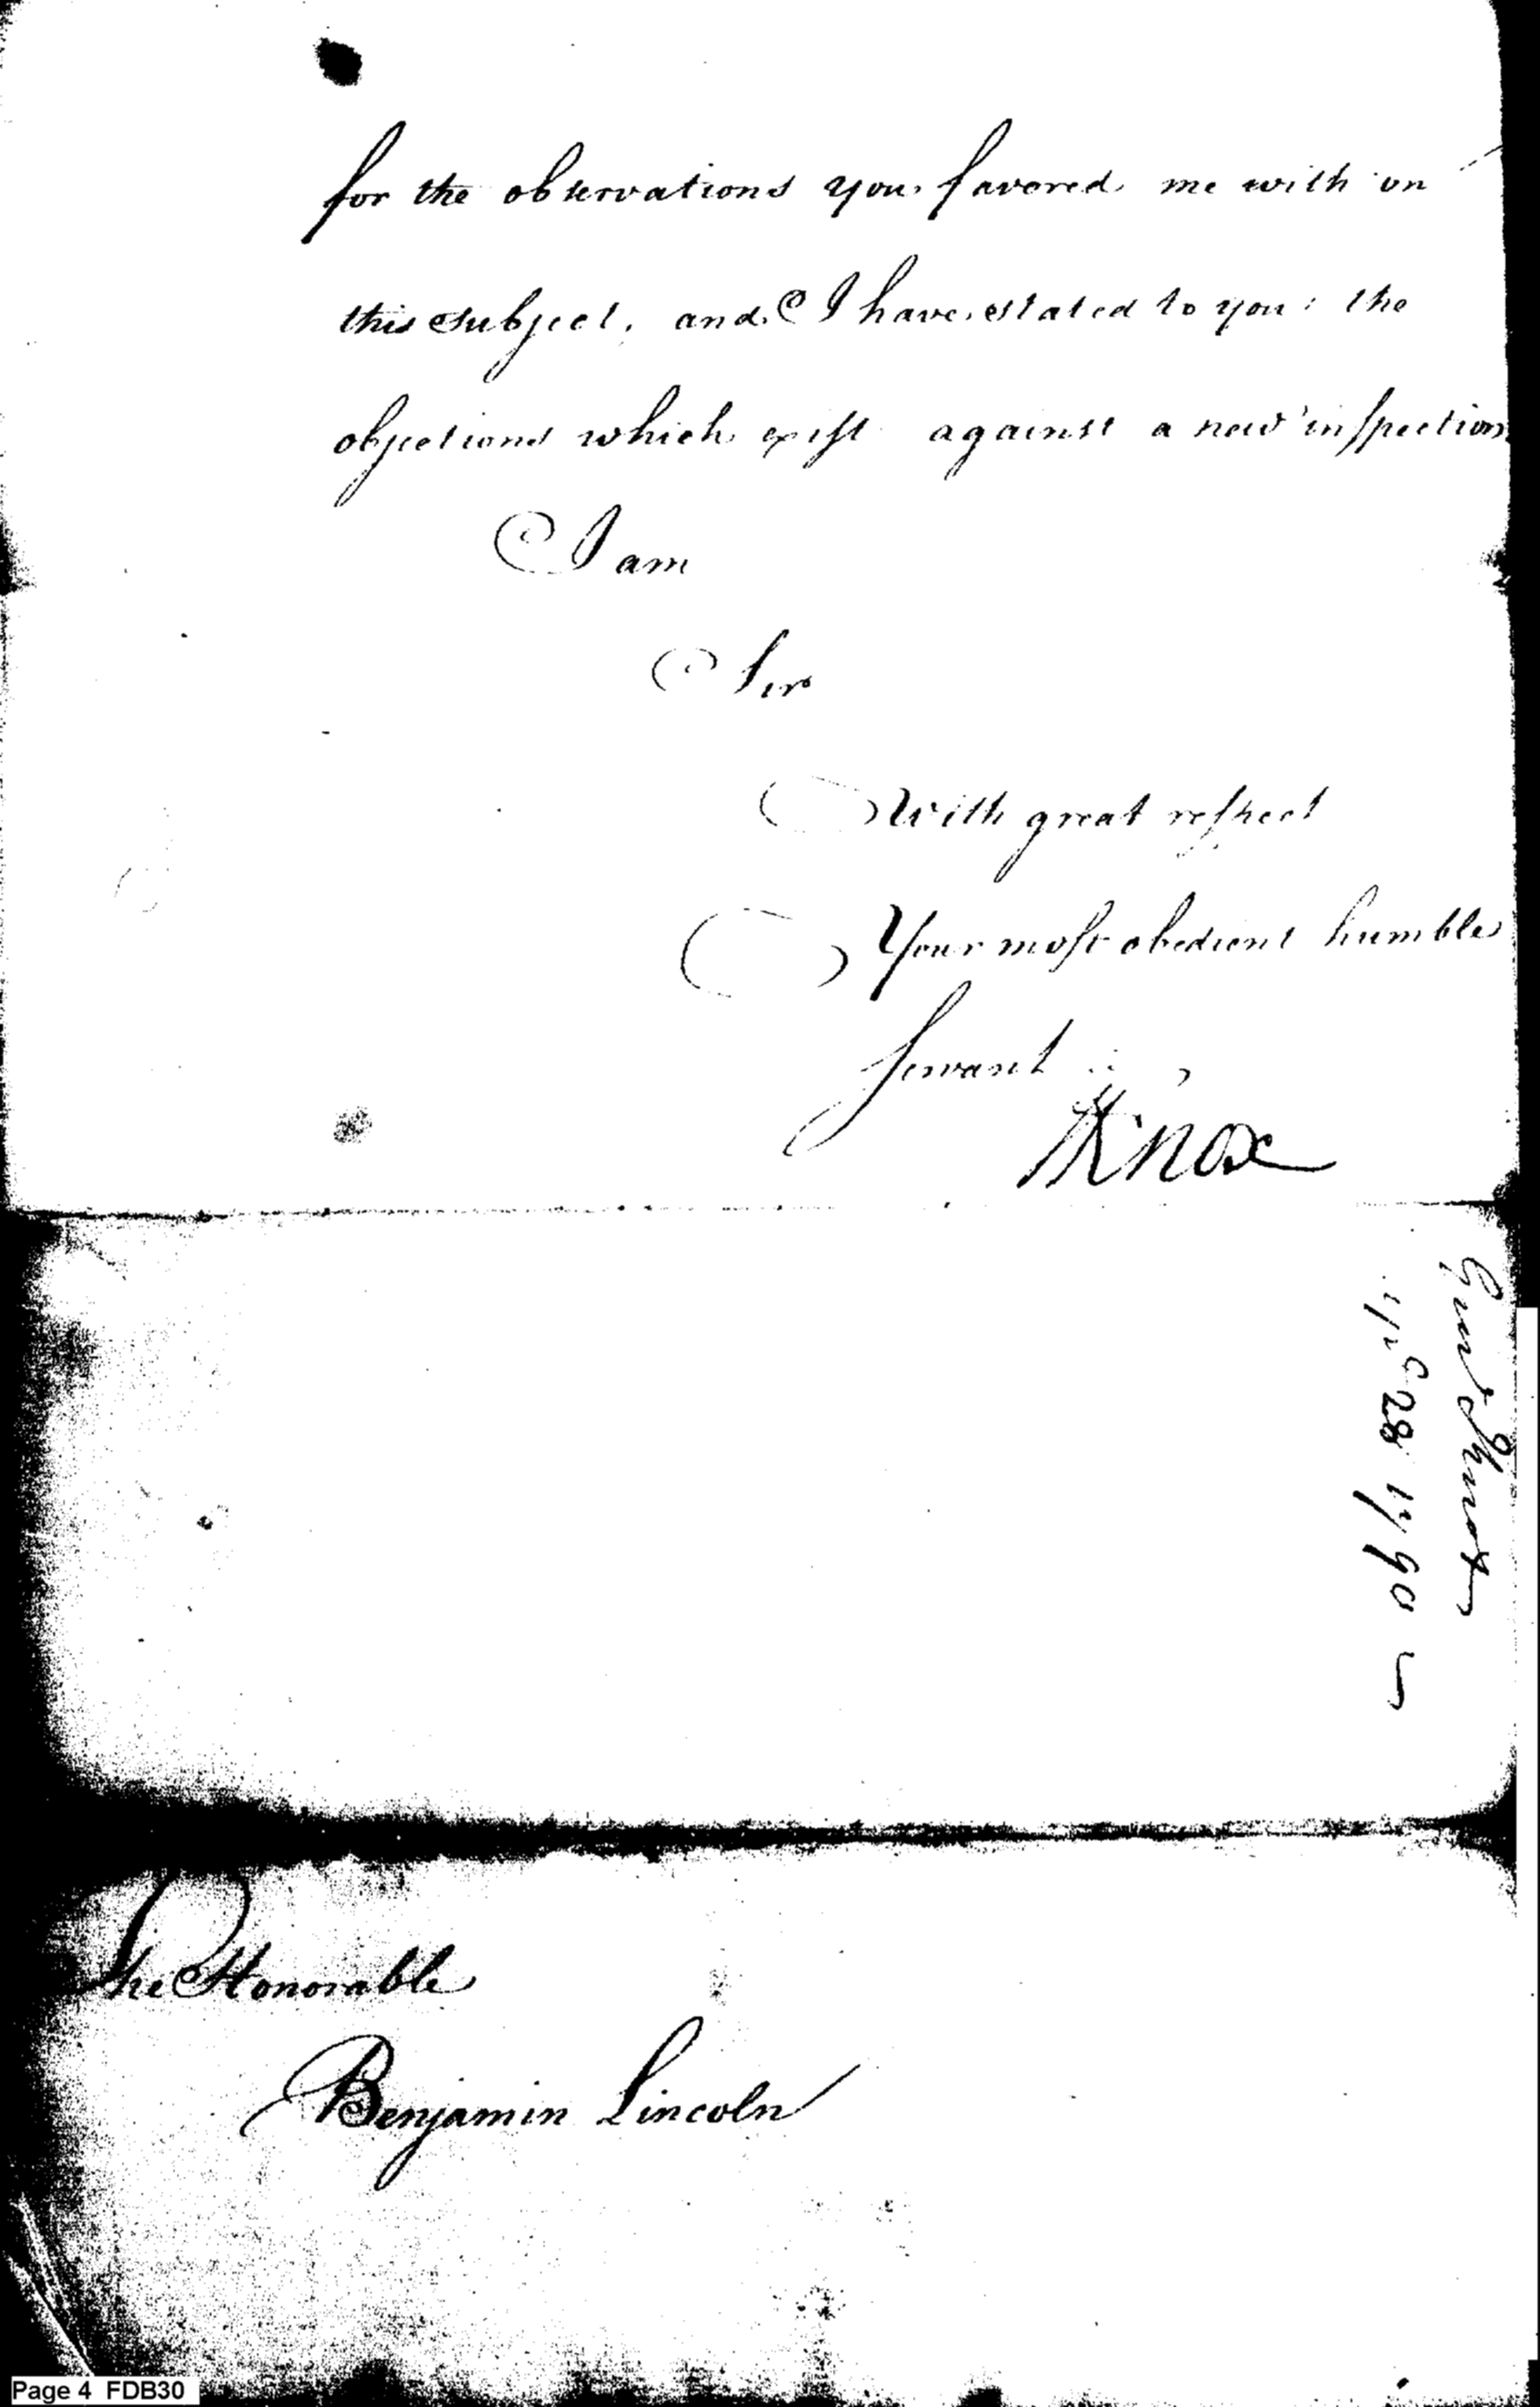 for the observations you favored me with on
this subject, and I have stated to you the
objections which exist against a new inspection
I am
Sir
With great respect
Your most obedient humble
Servant
HKnox
Genl Knox
28 1790
The Honorable
Benjamin Lincoln
Page 4 FDB30